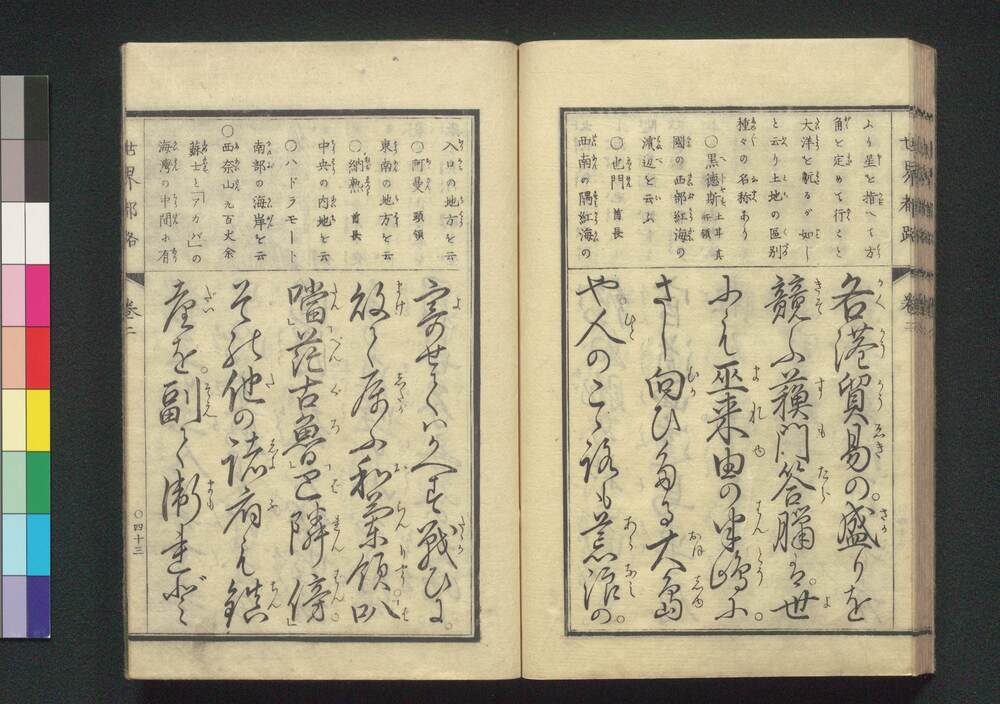 より星を指へて方
角を定めて行こと
大洋を航るが如し
と云り土地の区別
種々の名称あり
○黒徳斯 土耳其所領
國の西部紅海の
濱辺を云ふ
○也門 酋長
西南の隅紅海の
各港貿易の。盛りを
競ふ蘓門答臘は。世
にも巫来由の半嶋に。
さし向ひたる大島
や人のこゝろも荒浪の。
入口の地方を云
○阿曼 頭領
東南の地方を云
○納熱 酋長
中央の内地を云
○ハドラモート
南部の海岸を云
○西奈山 九百丈余
蘇士と「アカバ」の
海湾の中間に有
寄せてハかへす戦ひに。
敗て属ふ和蘭領。叭
噹。茫古魯。巴隣傍。
其他の諸府も鎮
臺を。副て衛れど
世界都路
巻二
○四十三